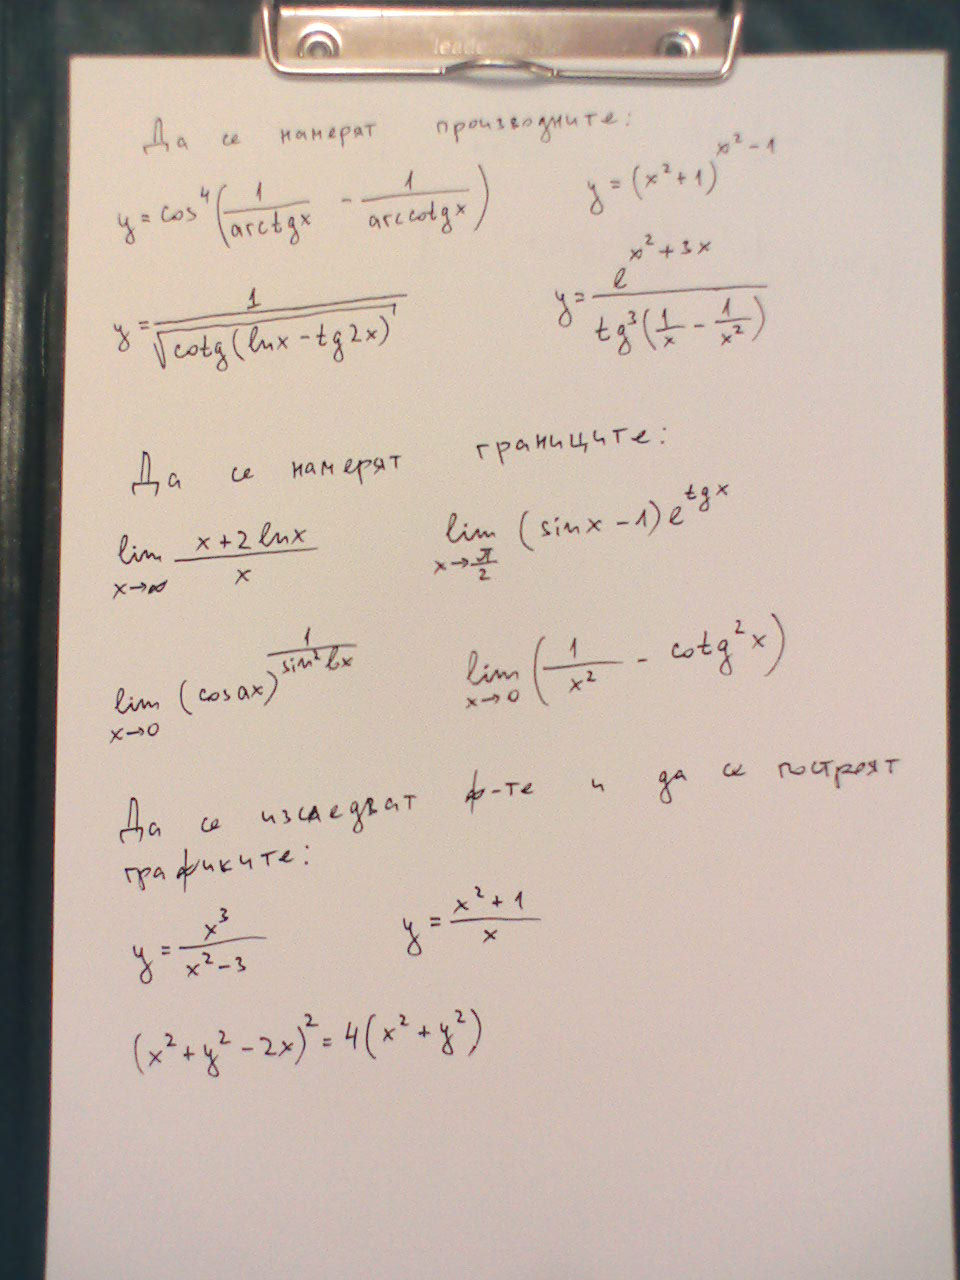 Да се намерят производните:
y = cos⁴(1/arctgx - 1/arccotgx) y = (x²+1)^(x²-1)
y = 1/√(cotg(lnx - tg2x)) y = e^(x²+3x)/tg³(1/x - 1/x²)
Да се намерят границите:
lim x→∞ (x+2lnx)/x lim x→π/2 (sinx - 1)e^(tgx)
lim x→0 (cosax)^(1/sin²bx) lim x→0 (1/x² - cotg²x)
Да се изследват ф-те и да се построят
графиките:
y = x³/(x²-3) y = (x²+1)/x
(x²+y²-2x)² = 4(x²+y²)